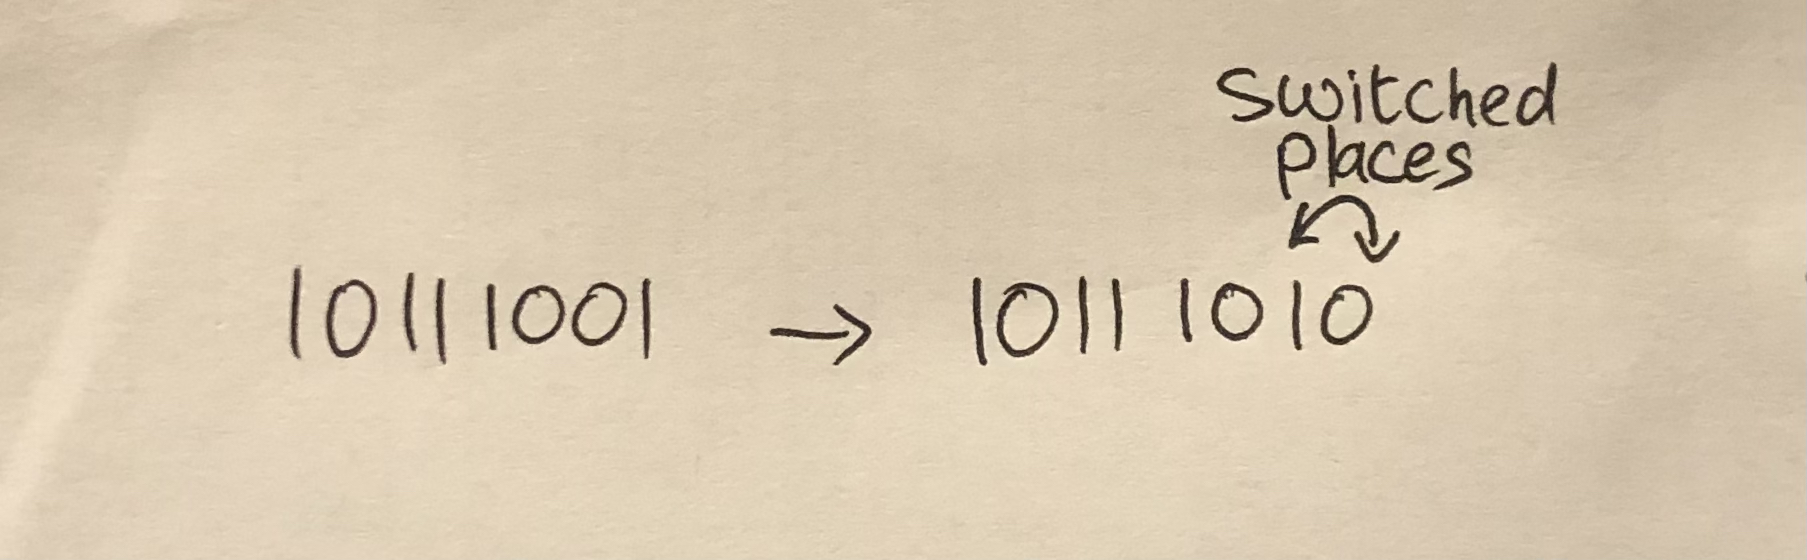 Switched
places
10111001 → 10111010